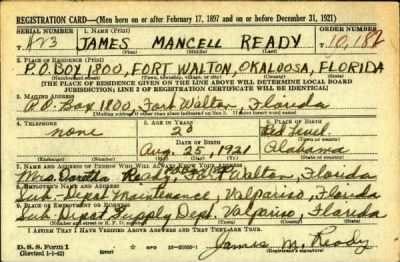 REGISTRATION CARD—(Men born on or after February 17, 1897 and on or before December 31, 1921)
SERIAL NUMBER 1. NAME (Print) ORDER NUMBER
JAMES MANCELL READY 10,182
2. PLACE OF RESIDENCE (Print)
P.O. BOX 1800, FORT WALTON, OKALOOSA, FLORIDA
(Number and street) (Town, township, village, or city) (County) (State)
[THE PLACE OF RESIDENCE GIVEN ON THE LINE ABOVE WILL DETERMINE LOCAL BOARD
JURISDICTION; LINE 2 OF REGISTRATION CERTIFICATE WILL BE IDENTICAL]
3. MAILING ADDRESS
P.O. Box 1800, Fort Walton, Florida
[Mailing address if other than place indicated on line 2. If same insert word same]
4. TELEPHONE 5. AGE IN YEARS 6. PLACE OF BIRTH
none 20 Red Level
DATE OF BIRTH (Town or county)
Aug. 25, 1921 Alabama
(Exchange) (Number) (Mo.) (Day) (Yr.) (State or country)
7. NAME AND ADDRESS OF PERSON WHO WILL ALWAYS KNOW YOUR ADDRESS
Mrs. Ready, Fort Walton, Florida
8. EMPLOYER'S NAME AND ADDRESS
Sub-Depot Maintenance, Valpariso, Florida
9. PLACE OF EMPLOYMENT OR BUSINESS
Sub. Depot Supply Dept. Valpariso, Florida
(Number and street or R. F. D. number) (Town) (County) (State)
I AFFIRM THAT I HAVE VERIFIED ABOVE ANSWERS AND THAT THEY ARE TRUE.
D. S. S. Form 1
(Revised 1-1-42) (over)
James M. Ready
(Registrant's signature)